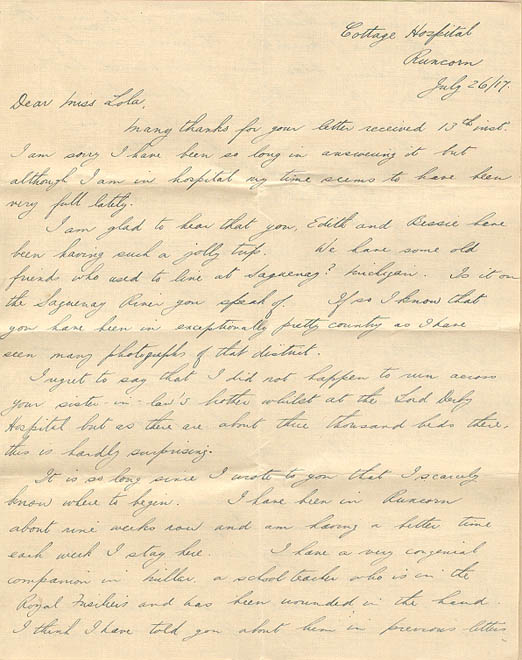 Cottage Hospital
Runcorn
July 26/17.
Dear Miss Lola,
Many thanks for your letter received 13th inst.
I am sorry I have been so long in answering it but
although I am in hospital my time seems to have been
very full lately.
I am glad to hear that you, Edith and Bessie have
been having such a jolly trip. We have some old
friends who used to live at Saguenay? Michigan. Is it on
the Saguenay River you speak of. If so I know that
you have been in exceptionally pretty country as I have
seen many photographs of that district.
I regret to say that I did not happen to run across
your sister-in-law's brother whilst at the Lord Derby
Hospital but as there are about three thousand beds there,
this is hardly surprising.
It is so long since I wrote to you that I scarcely
know where to begin. I have been in Runcorn
about nine weeks now and am having a better time
each week I stay here. I have a very congenial
companion in Miller, a schoolteacher who is in the
Royal Fusiliers and has been wounded in the hand.
I think I have told you about him in previous letters